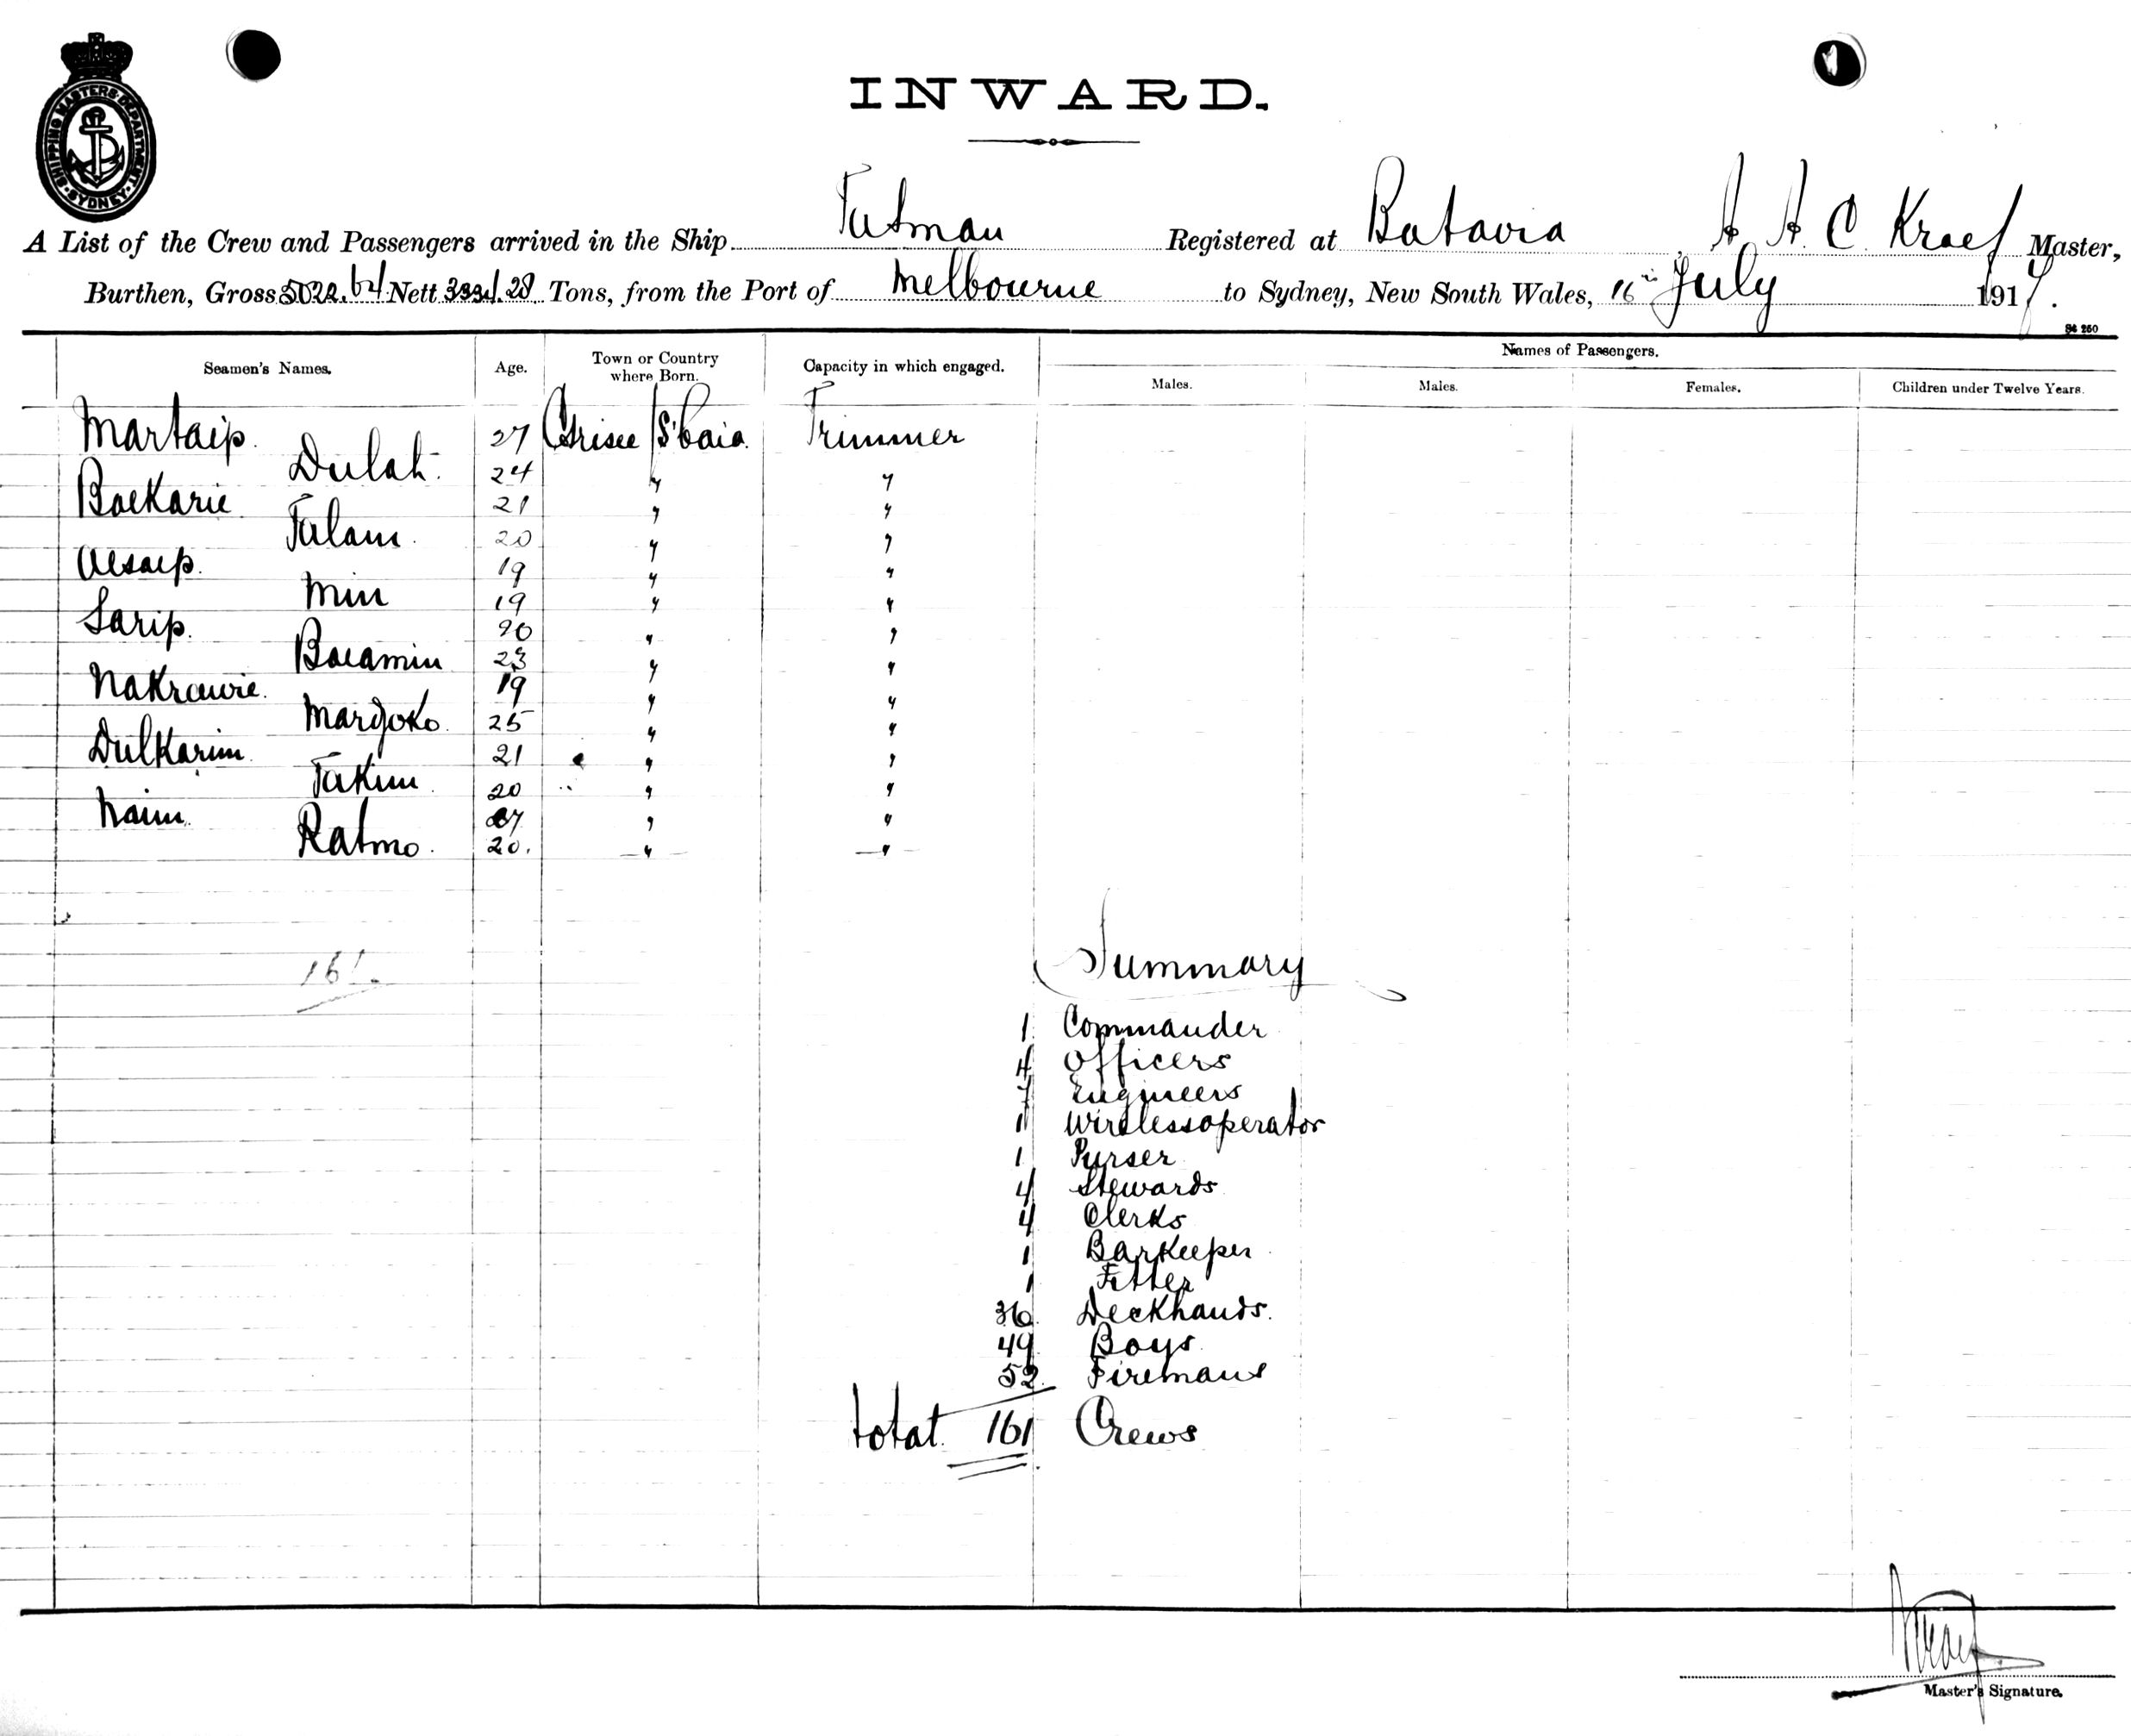 SHIPPING MASTERS DEPARTMENT SYDNEY
INWARD.
A List of the Crew and Passengers arrived in the Ship Tasman Registered at Batavia, A. A. C. Kraef Master,
Burthen, Gross 5022.64 Nett 3334.28 Tons, from the Port of Melbourne to Sydney, New South Wales, 16th July 1917.
S4 250
Seamen's Names. Age. Town or Country where Born. Capacity in which engaged. Names of Passengers.
Males. Males. Females. Children under Twelve Years.
Martaip. 27 Grisee/S'baia. Trimmer
Dulah. 24 " "
Boekarie 21 " "
Talam. 20 " "
Aesaep. 19 " "
Min 19 " "
Sarip. 20 " "
Boeamin 23 " "
Nakrawie. 19 " "
Margoko. 25 " "
Dulkarim 21 " "
Takim 20 " "
Naim. 27 " "
Ratmo. 20. " "
161.
Summary
1 Commander
4 Officers
7 Engineers
1 Wirelessoperator
1 Purser
4 Stewards
4 Clerks
1 Barkeeper
1 Fitter
36 Deckhands.
49 Boys
52 Firemans
total 161 Crews
Master's Signature.